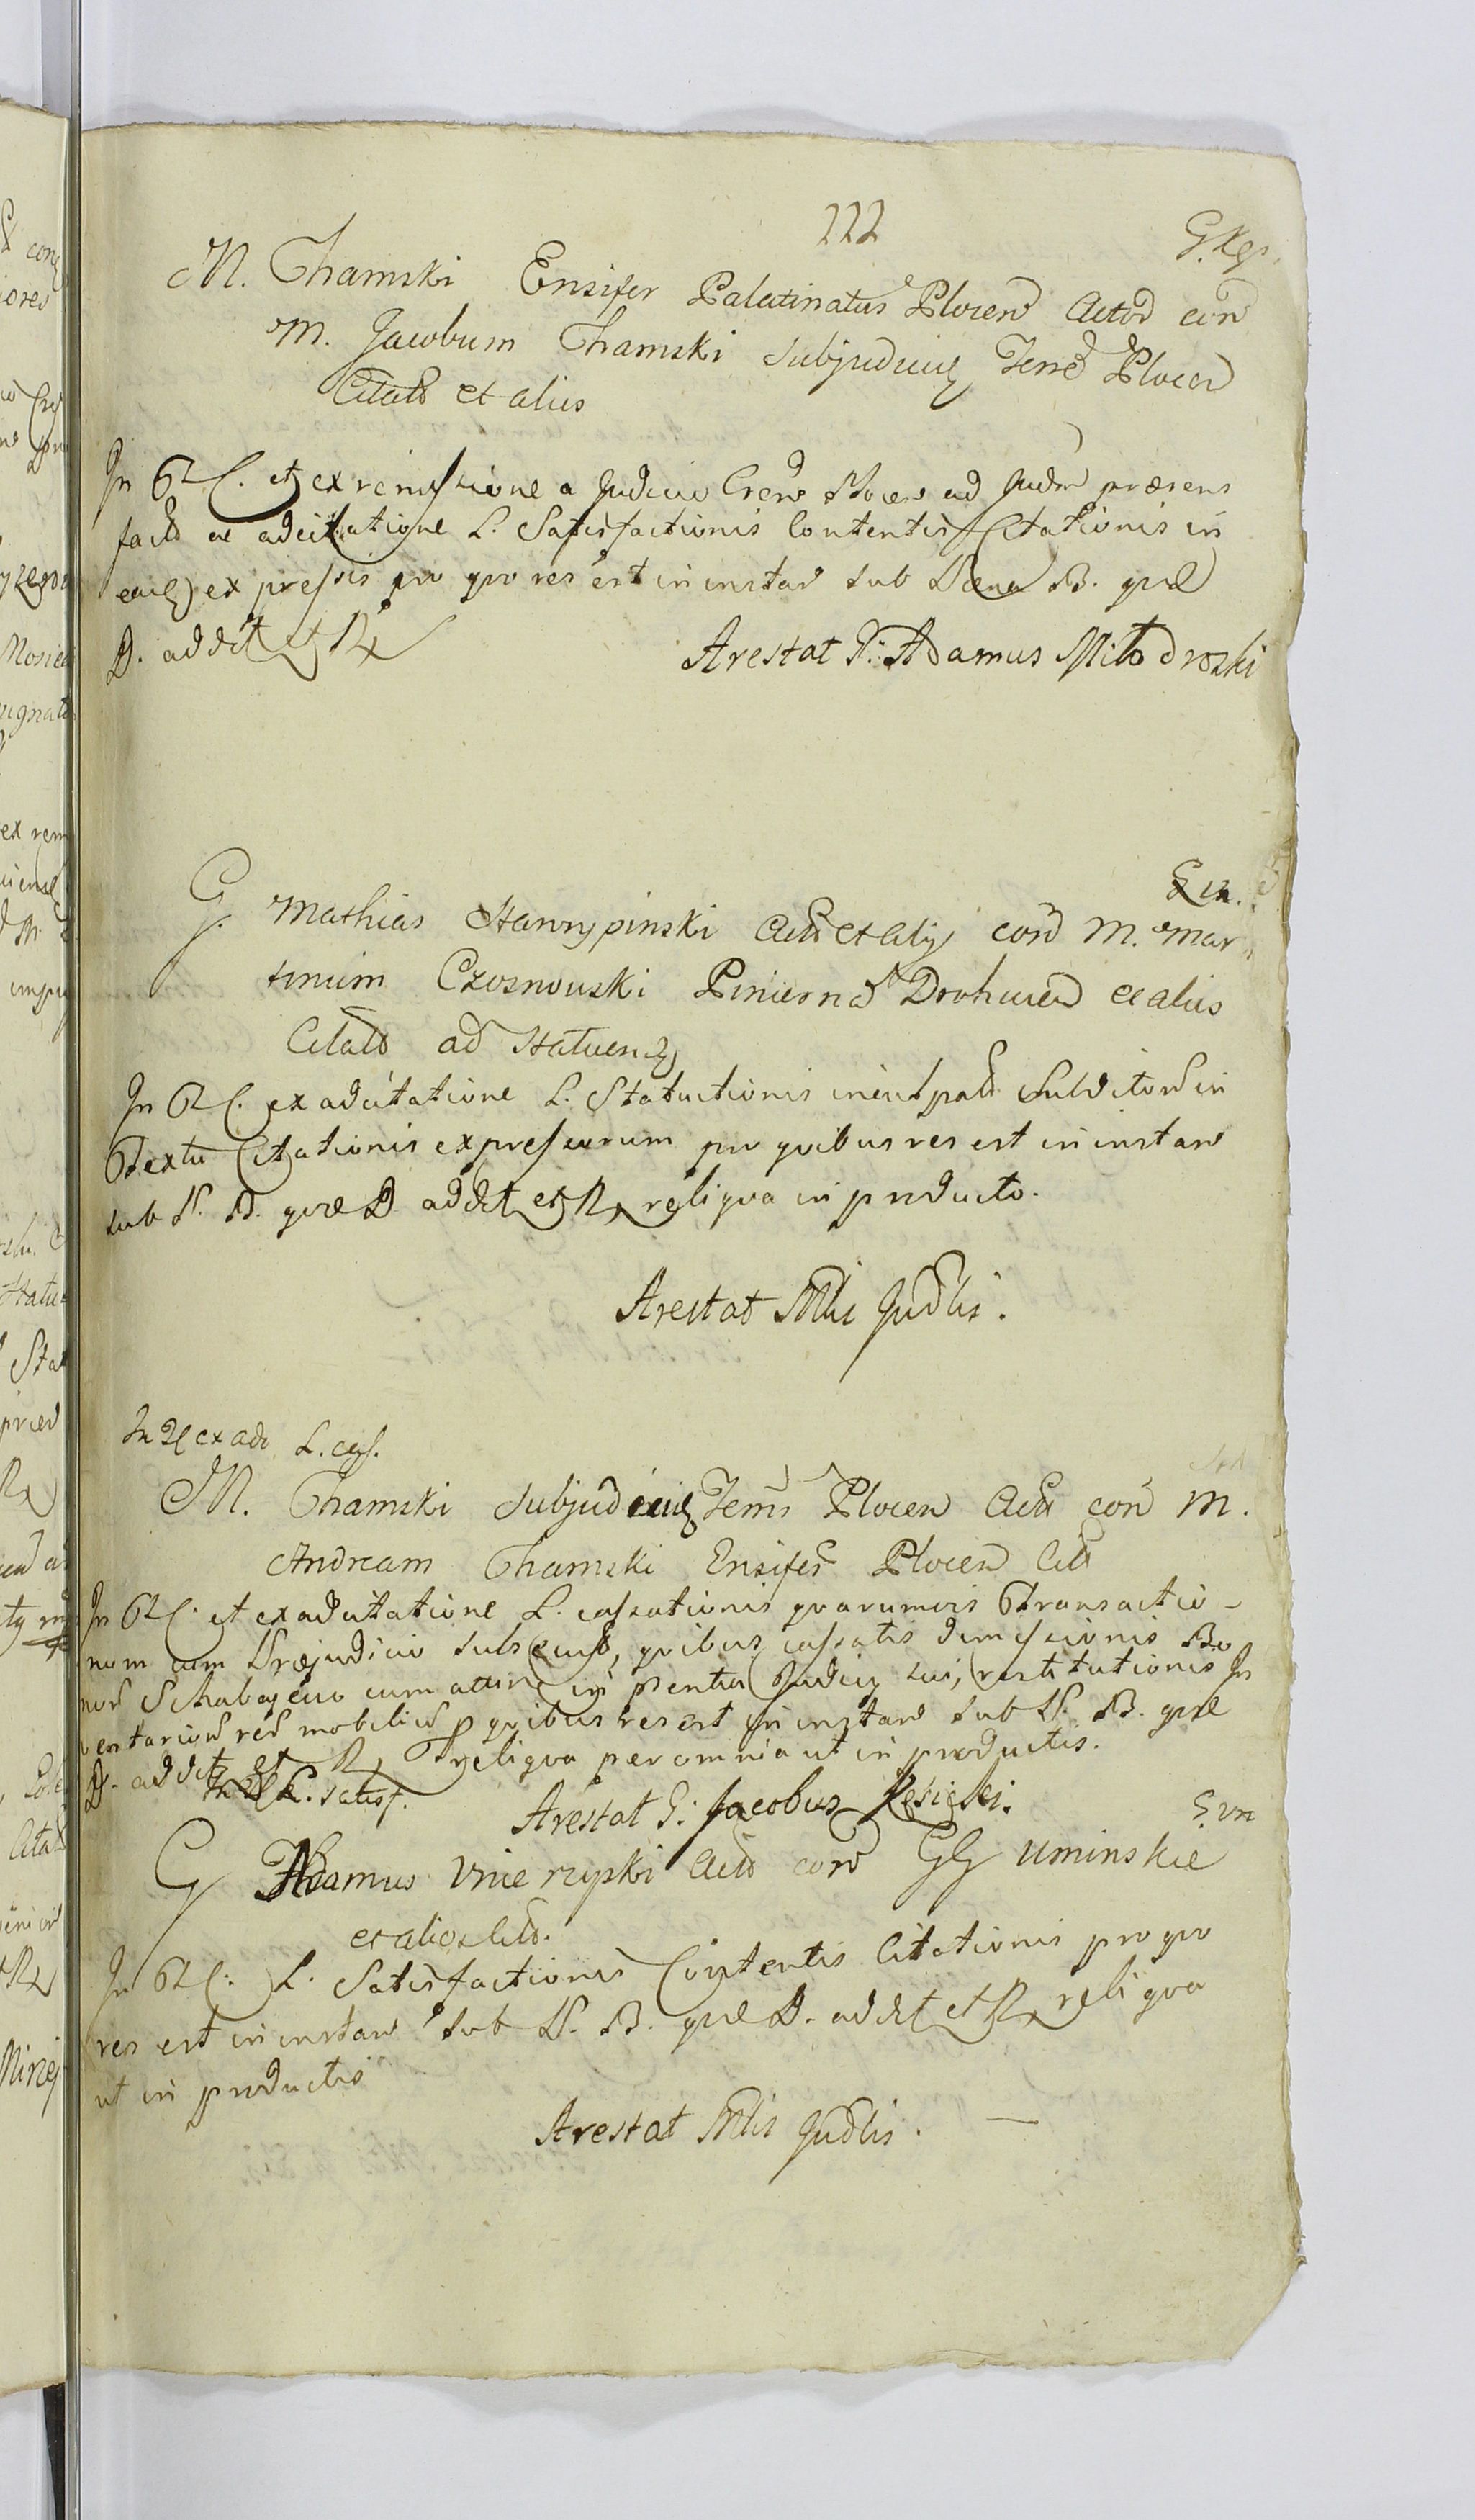 222
M. Thamski Ensifer Palatinatus Plocen Actor con
M. Jacobum Thamski Subjudicem Terrae Plocen
Citato et alios
In et ex remissione a Judicio Plocen ad Judm praesens
facto ac adcitatione L. Satisfactionis Contentis Citationis in
eaq expressis pro quo res est in instan sub Paena B. quae
D. addet et Rx
Arestat P. Adamus Milodroski
G. Mathias Starorypinski et aliy con M. Mar
tinum Czosnowski Pincerna Drohicen et alios
Citato ad Statuenq
In ex adcitatione L. Statuitionis inculpato Subditor in
Textu Citationis expressorum pro quibus res est in instan
sub P. B. quae D addet et Rx reliqua in producto.
Arestat Mlis Judlis.
In ex adc L. cass.
M. Thamski Subjudicem Terris Plocen con M.
Andream Thamski Ensifer Plocen Citt
In et ex adcitatione L. cassationis quarumvis Transactio-
num cum Praejudicio subsecut, quibus cassatis dimissionis Bo
nor cum attin in Judicij sui, restitutionis In
ventarior rer mobiliu p quibus res est in instan sub P. B. quae
D. addet et Rx reliqua per omnia ut in productis.
L. satisf.
Arestat G. Jacobus
G Adamus con GG Uminskie
et alios Citt.
In L. Satisfactionis Contentis Citationis pro quo
res est in instan sub P. B. quae D. addet et Rx reliqua
ut in productis
Arestat Mlis Judlis.